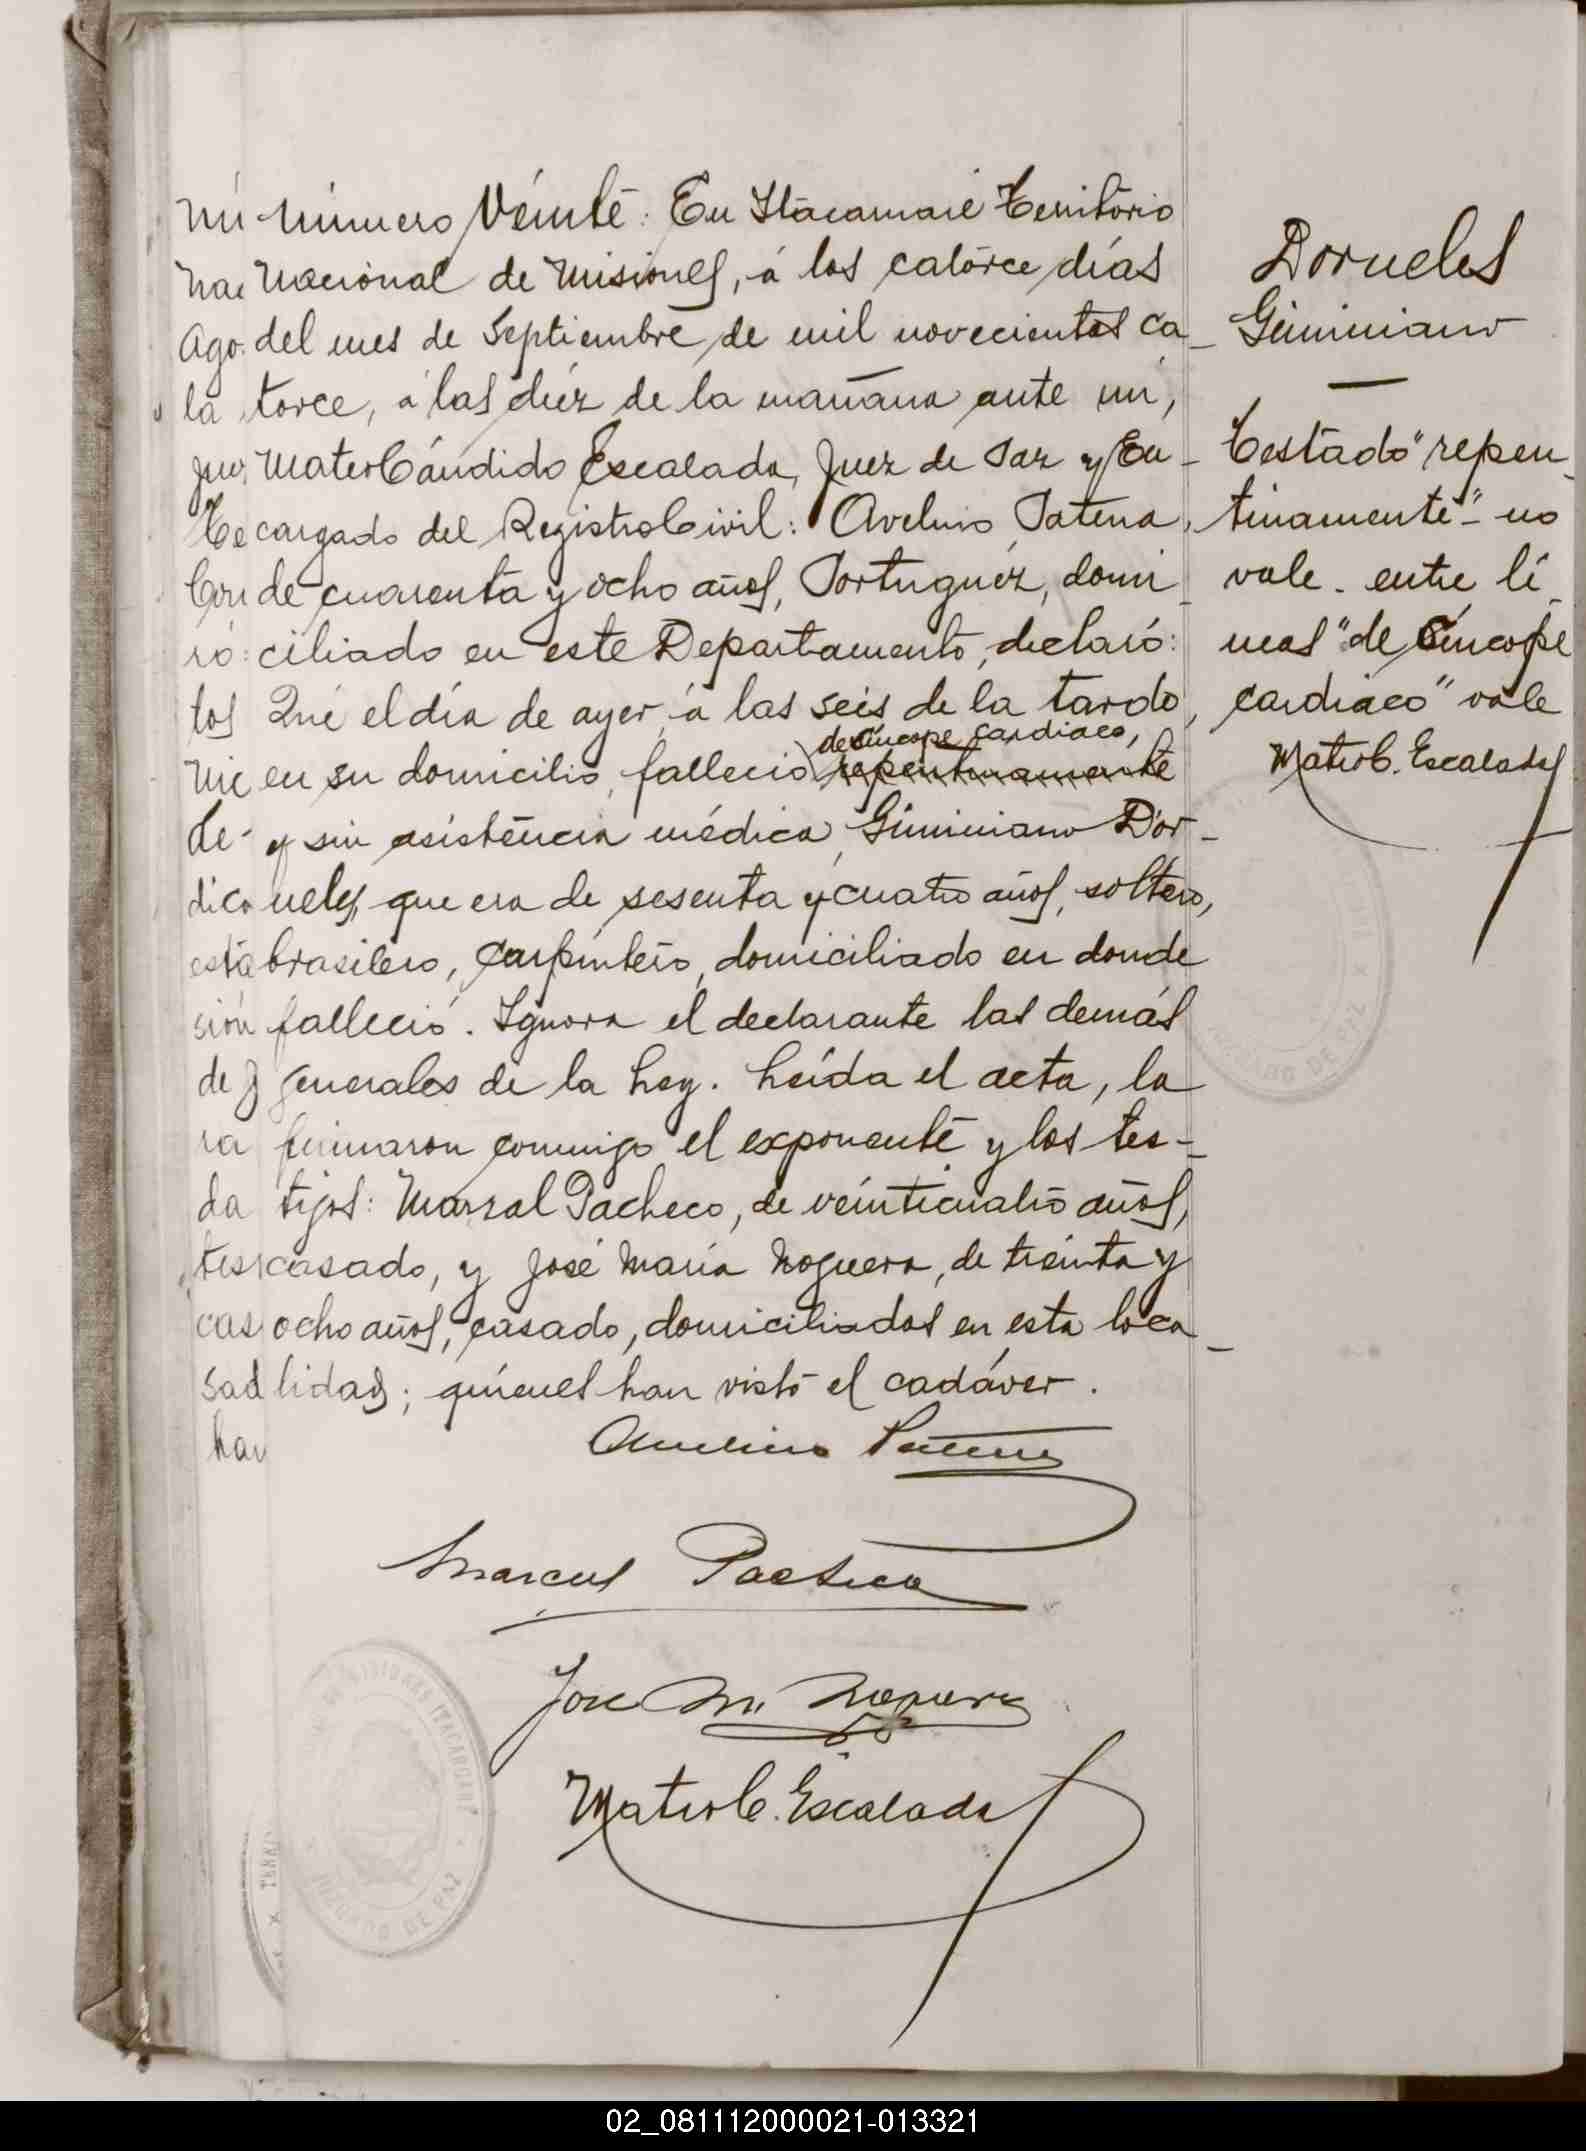 Número Veinte: En Itacaruaré Territorio
Nacional de Misiones, á los catorce días
del mes de Septiembre de mil novecientos ca-
torce, á las diéz de la mañana ante mi,
Mateo Cándido Escalada, Juez de Paz y En-
cargado del Registro Civil: Avelino Patena,
de cuarenta y ocho años, Portuguéz, domi-
ciliado en este Departamento, declaró:
Qué el día de ayer, á las seis de la tarde,
de Síncope cardiaco,
en su domicilio, falleció repentinamente
y sin asistencia médica, Giminiano Dor-
neles, que era de sesenta y cuatro años, soltero,
brasilero, carpintero, domiciliado en donde
falleció. Ignora el declarante las demás
generales de la ley. Leída el acta, la
firmaron conmigo el exponente y los tes-
tijos: Marzal Pacheco, de veinticuatro años,
casado, y José María Noguera, de treinta y
ocho años, casado, domiciliados en esta loca-
lidad; quienes han visto el cadáver.
Avelino Patena
Marcul Pacheco
Jose M. Noguera
Mateo C. Escalada
Dorneles
Giminiano
Testado "repen-
tinamente" - no
vale - entre lí-
neas "de Síncope
cardiaco" vale
Mateo C. Escalada
MISIONES ITACARUARÉ
JUZGADO DE PAZ
02_081112000021-013321